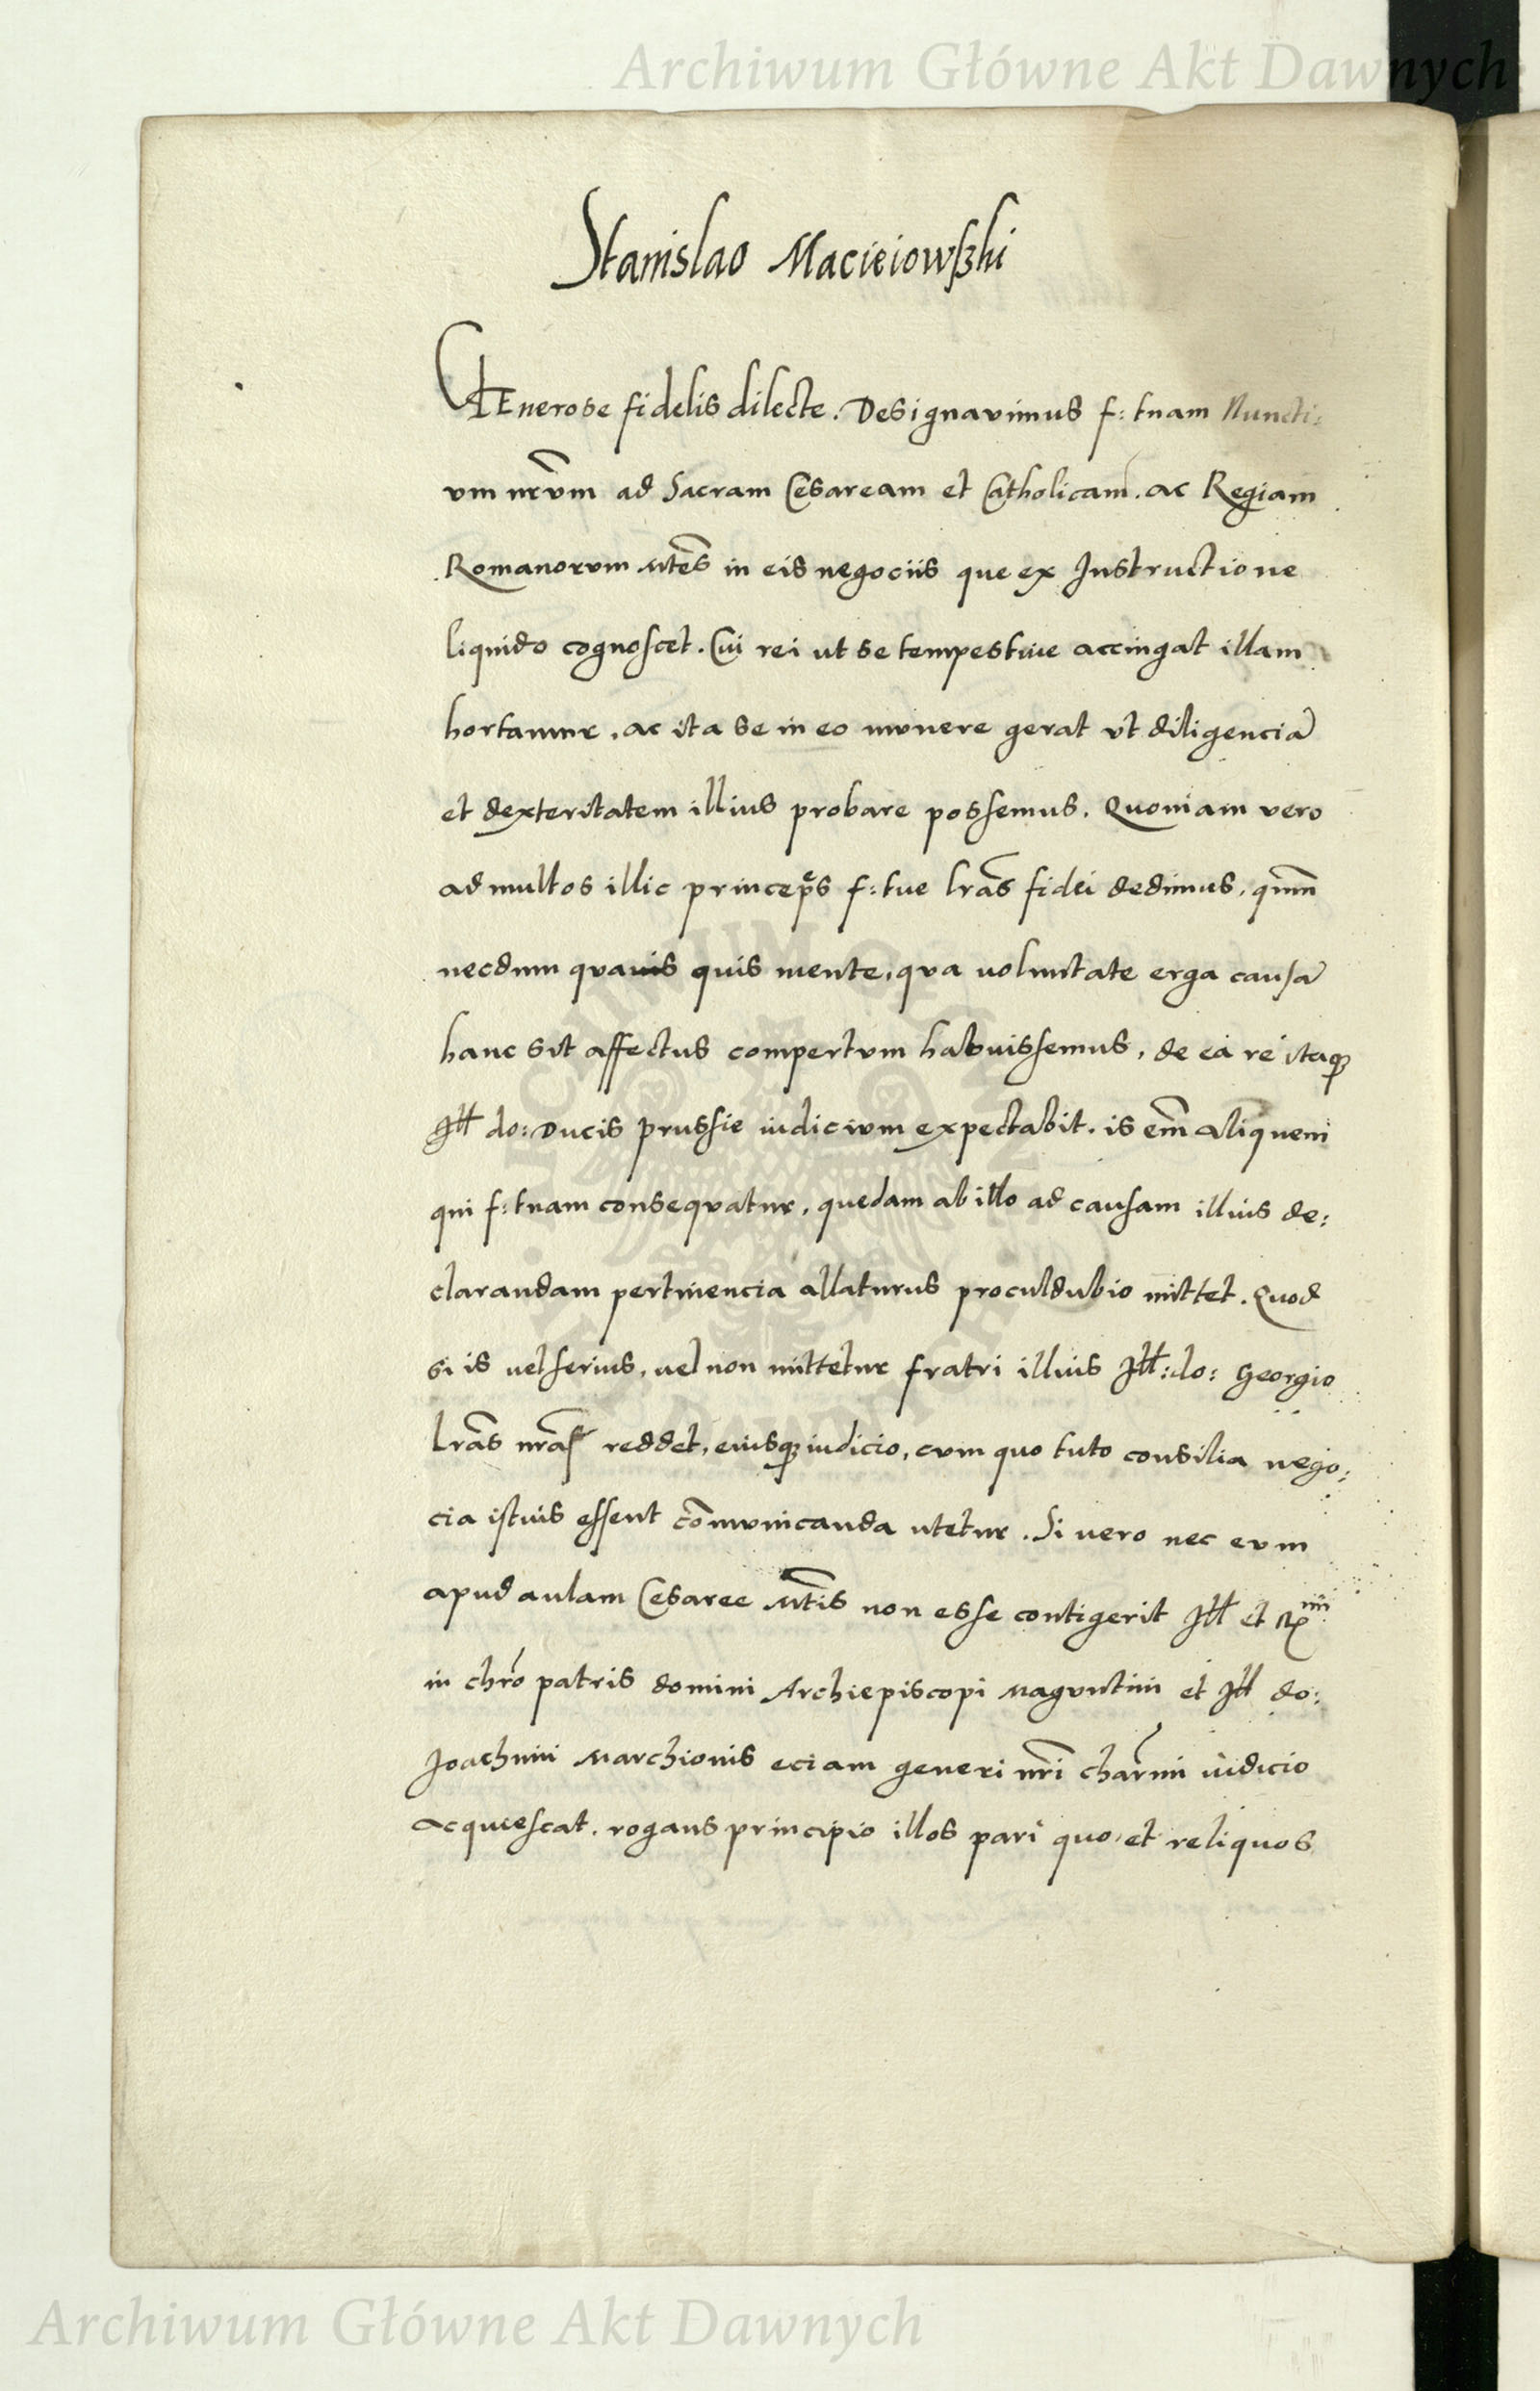 Archiwum Główne Akt Dawnych
Stanislao Macieiowßki
GEnerose fidelis dilecte. Designavimus f: tuam Nuncti:
vm nr̃vm ad Sacram Cesaream et Catholicam. ac Regiam
Romanorvm Mtẽs in eis negociis que ex Instructione
liquido cognoscet. Cui rei ut se tempestiue accingat illam
hortamur, ac ita se in eo mvnere gerat vt diligenciã
et dexteritatem illius probare possemus. Quoniam vero
ad multos illic princep̃s f: tue lrãs fidei dedimus, qnm̃
necdum qvavis quis mente, qva voluntate erga causã
hanc sit affectus compertvm habuissemus, de ea re itaq3
Ill do: Ducis Prussie iudicivm expectabit. is em̃ aliquem
qui f: tuam conseqvatur, quedam ab illo ad causam illius de:
clarandam pertinencia allaturus proculdubio mittet. Quod
si is vel serius, vel non mittetur fratri illius Ill: do: Georgio
Lrãs nrãs reddet, eiusq3 iudicio, cvm quo tuto consilia nego:
cia istius essent cõmvnicanda utetur. Si vero nec evm
apud aulam Cesaree Mtĩs non esse contigerit Ill et Rmi
in chrõ patris domini Archiepiscopi Magvntini et Ill do:
Joachimi Marchionis eciam generi nrĩ charmĩ iudicio
acquiescat. rogans principio illos pari quo et reliquos
Archiwum Główne Akt Dawnych